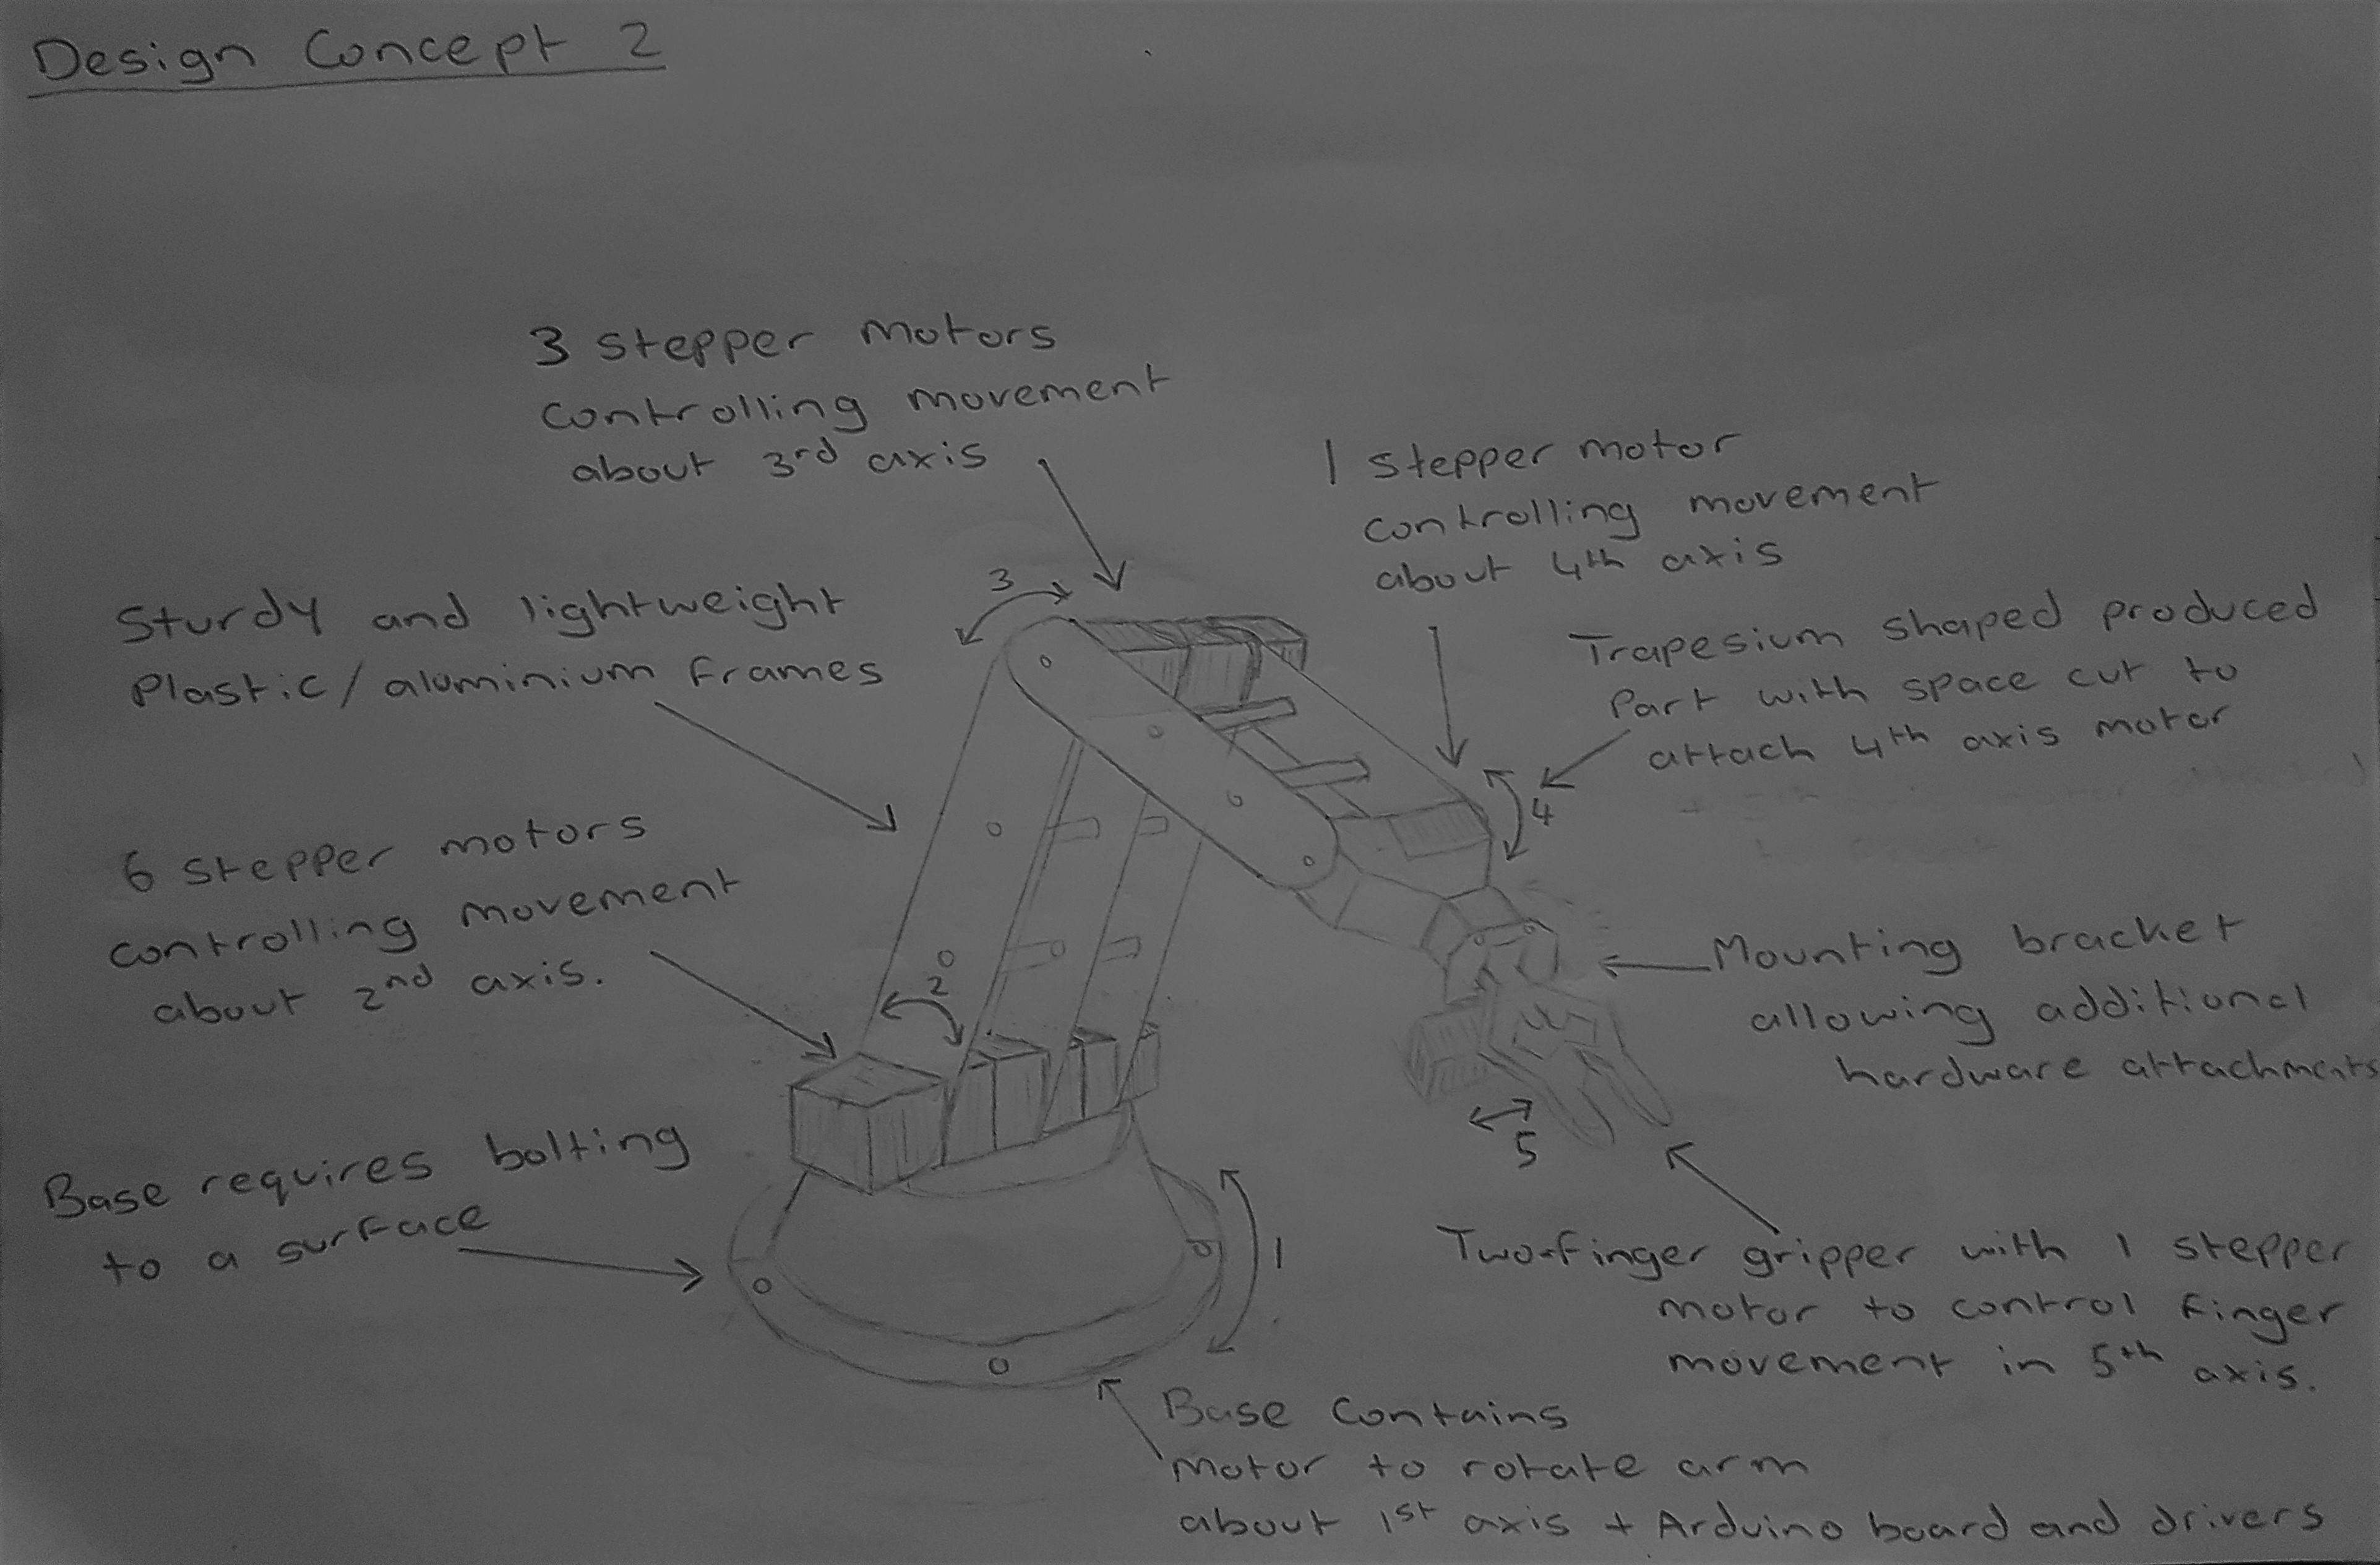 Design Concept 2
3 stepper motors
controlling movement
about 3rd axis
1 stepper motor
controlling movement
about 4th axis
Sturdy and lightweight
Plastic/aluminium frames
Trapesium shaped produced
Part with space cut to
attach 4th axis motor
3
4
6 stepper motors
controlling movement
about 2nd axis.
2
Mounting bracket
allowing additional
hardware attachments
Base requires bolting
to a surface
5
1
Two-finger gripper with 1 stepper
motor to control finger
movement in 5th axis.
Base contains
motor to rotate arm
about 1st axis + Arduino board and drivers